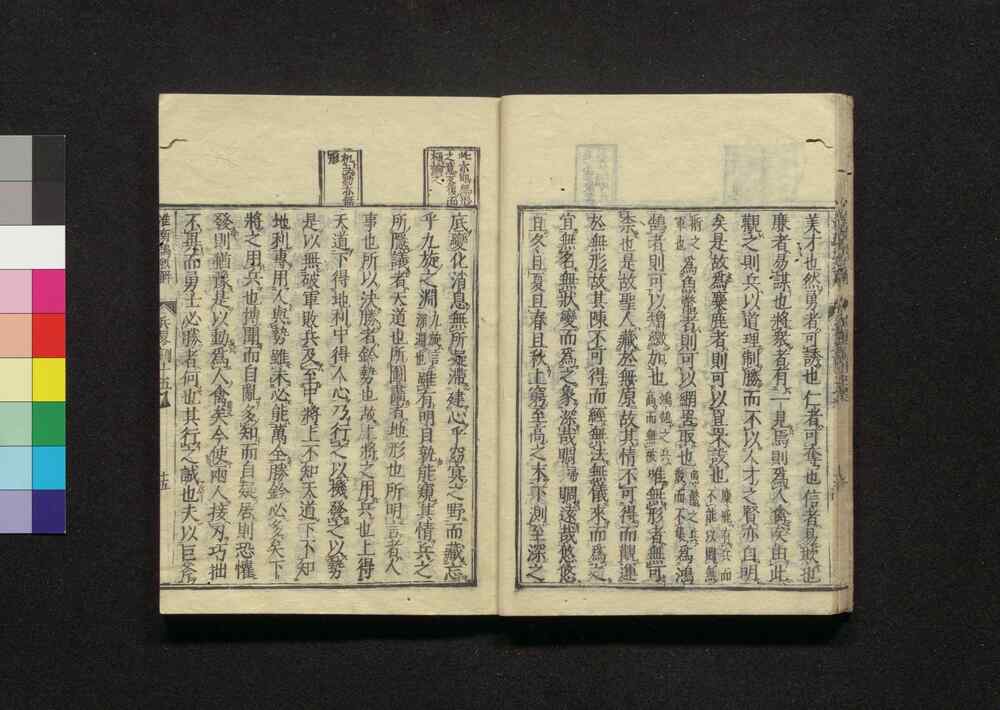 美才也然勇者可誘也仁者可奪也信者易欺也
廉者易謀也將衆者有一見焉則爲人禽矣由此
觀之則兵以道理制勝而不以人才之賢亦自明
矣是故爲麋鹿者則可以罝罘設也麋鹿有兵而不能以鬪無
術之軍也爲魚鼈者則可以網罟取也魚鼈之兵散而不集爲鴻
鵠者則可以矰繳加也鴻鵠之兵高而無被唯無形者無可
柰也是故聖人藏於無原故其情不可得而觀運
於無形故其陳不可得而經無法無儀來而爲之
宜無名無狀變而爲之象深哉睭睭遠哉悠悠
且冬且夏且春且秋上窮至高之末下測至深之
底變化消息無所凝滯建心乎窈冥之野而藏志
乎九旋之淵九旋言深淵也雖有明目孰能窺其情兵之
所隱議者天道也所圖畫者地形也所明言者人
事也所以決勝者鈐勢也故上將之用兵也上得
天道下得地利中得人心乃行之以機發之以勢
是以無破軍敗兵及至中將上不知天道下不知
地利專用人與勢雖未必能萬全勝鈐必多矣下
將之用兵也博聞而自亂多知而自疑居則恐懼
發則猶豫是以動爲人禽矣今使兩人接刃巧拙
不異而勇士必勝者何也其行之誠也夫以巨斧